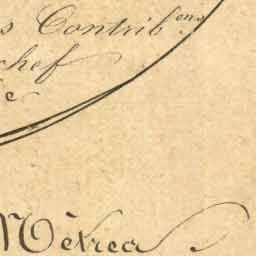 s Contrib.ens
chef
e
Mètres